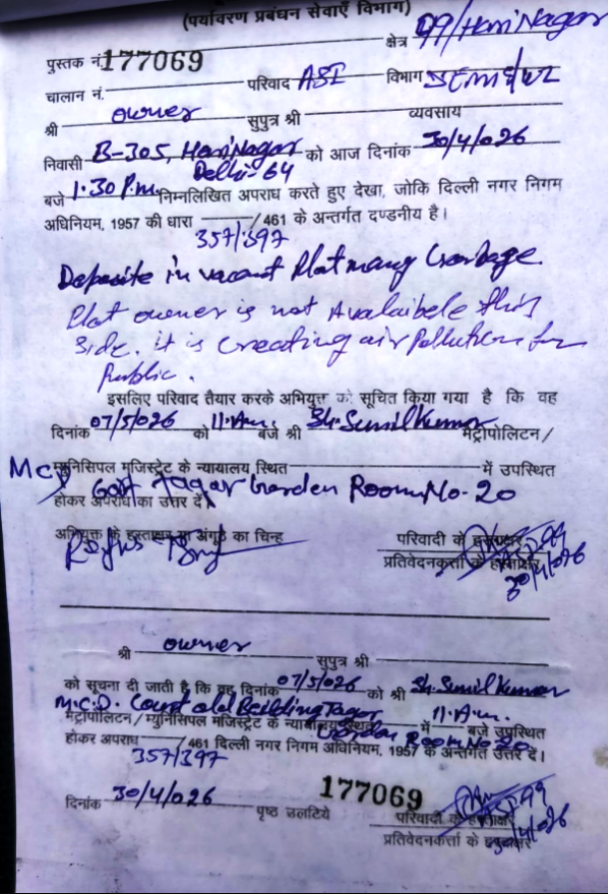 (पर्यावरण प्रबंधन सेवाएँ विभाग)
पुस्तक नं. 177069 क्षेत्र 99/Hari Nagar
चालान नं. परिवाद ASI विभाग DEMS/WZ
श्री owner सुपुत्र श्री व्यवसाय
निवासी B-305, Hari Nagar Delhi-64 को आज दिनांक 30/4/026
बजे 1.30 P.m. निम्नलिखित अपराध करते हुए देखा, जोकि दिल्ली नगर निगम
अधिनियम, 1957 की धारा 357/397 / 461 के अन्तर्गत दण्डनीय है।
Deposite in vacant Plot many Garbage.
Plot owner is not Avalaibele this
Side. it is creating air Pollution for
Public.
इसलिए परिवाद तैयार करके अभियुक्त को सूचित किया गया है कि वह
दिनांक 07/5/026 को 11.A.m. बजे श्री Sh. Sunil Kumar मेट्रोपोलिटन/
MCD म्युनिसिपल मजिस्ट्रेट के न्यायालय स्थित में उपस्थित
होकर अपराध का उत्तर दें। Tagar Garden Room No-20
अभियुक्त के हस्ताक्षर या अंगूठे का चिन्ह परिवादी के हस्ताक्षर
प्रतिवेदनकर्त्ता के हस्ताक्षर
30/4/026
श्री owner सुपुत्र श्री
को सूचना दी जाती है कि वह दिनांक 07/5/026 को श्री Sh. Sunil Kumar
M.C.D. Court old Building Tagor 11.A.m.
मेट्रोपोलिटन / म्युनिसिपल मजिस्ट्रेट के न्यायालय स्थित में बजे उपस्थित
Garden Room No 20
होकर अपराध 357/397 / 461 दिल्ली नगर निगम अधिनियम, 1957 के अन्तर्गत उत्तर दें।
177069
दिनांक 30/4/026 पृष्ठ उलटिये परिवादी के हस्ताक्षर
प्रतिवेदनकर्त्ता के हस्ताक्षर